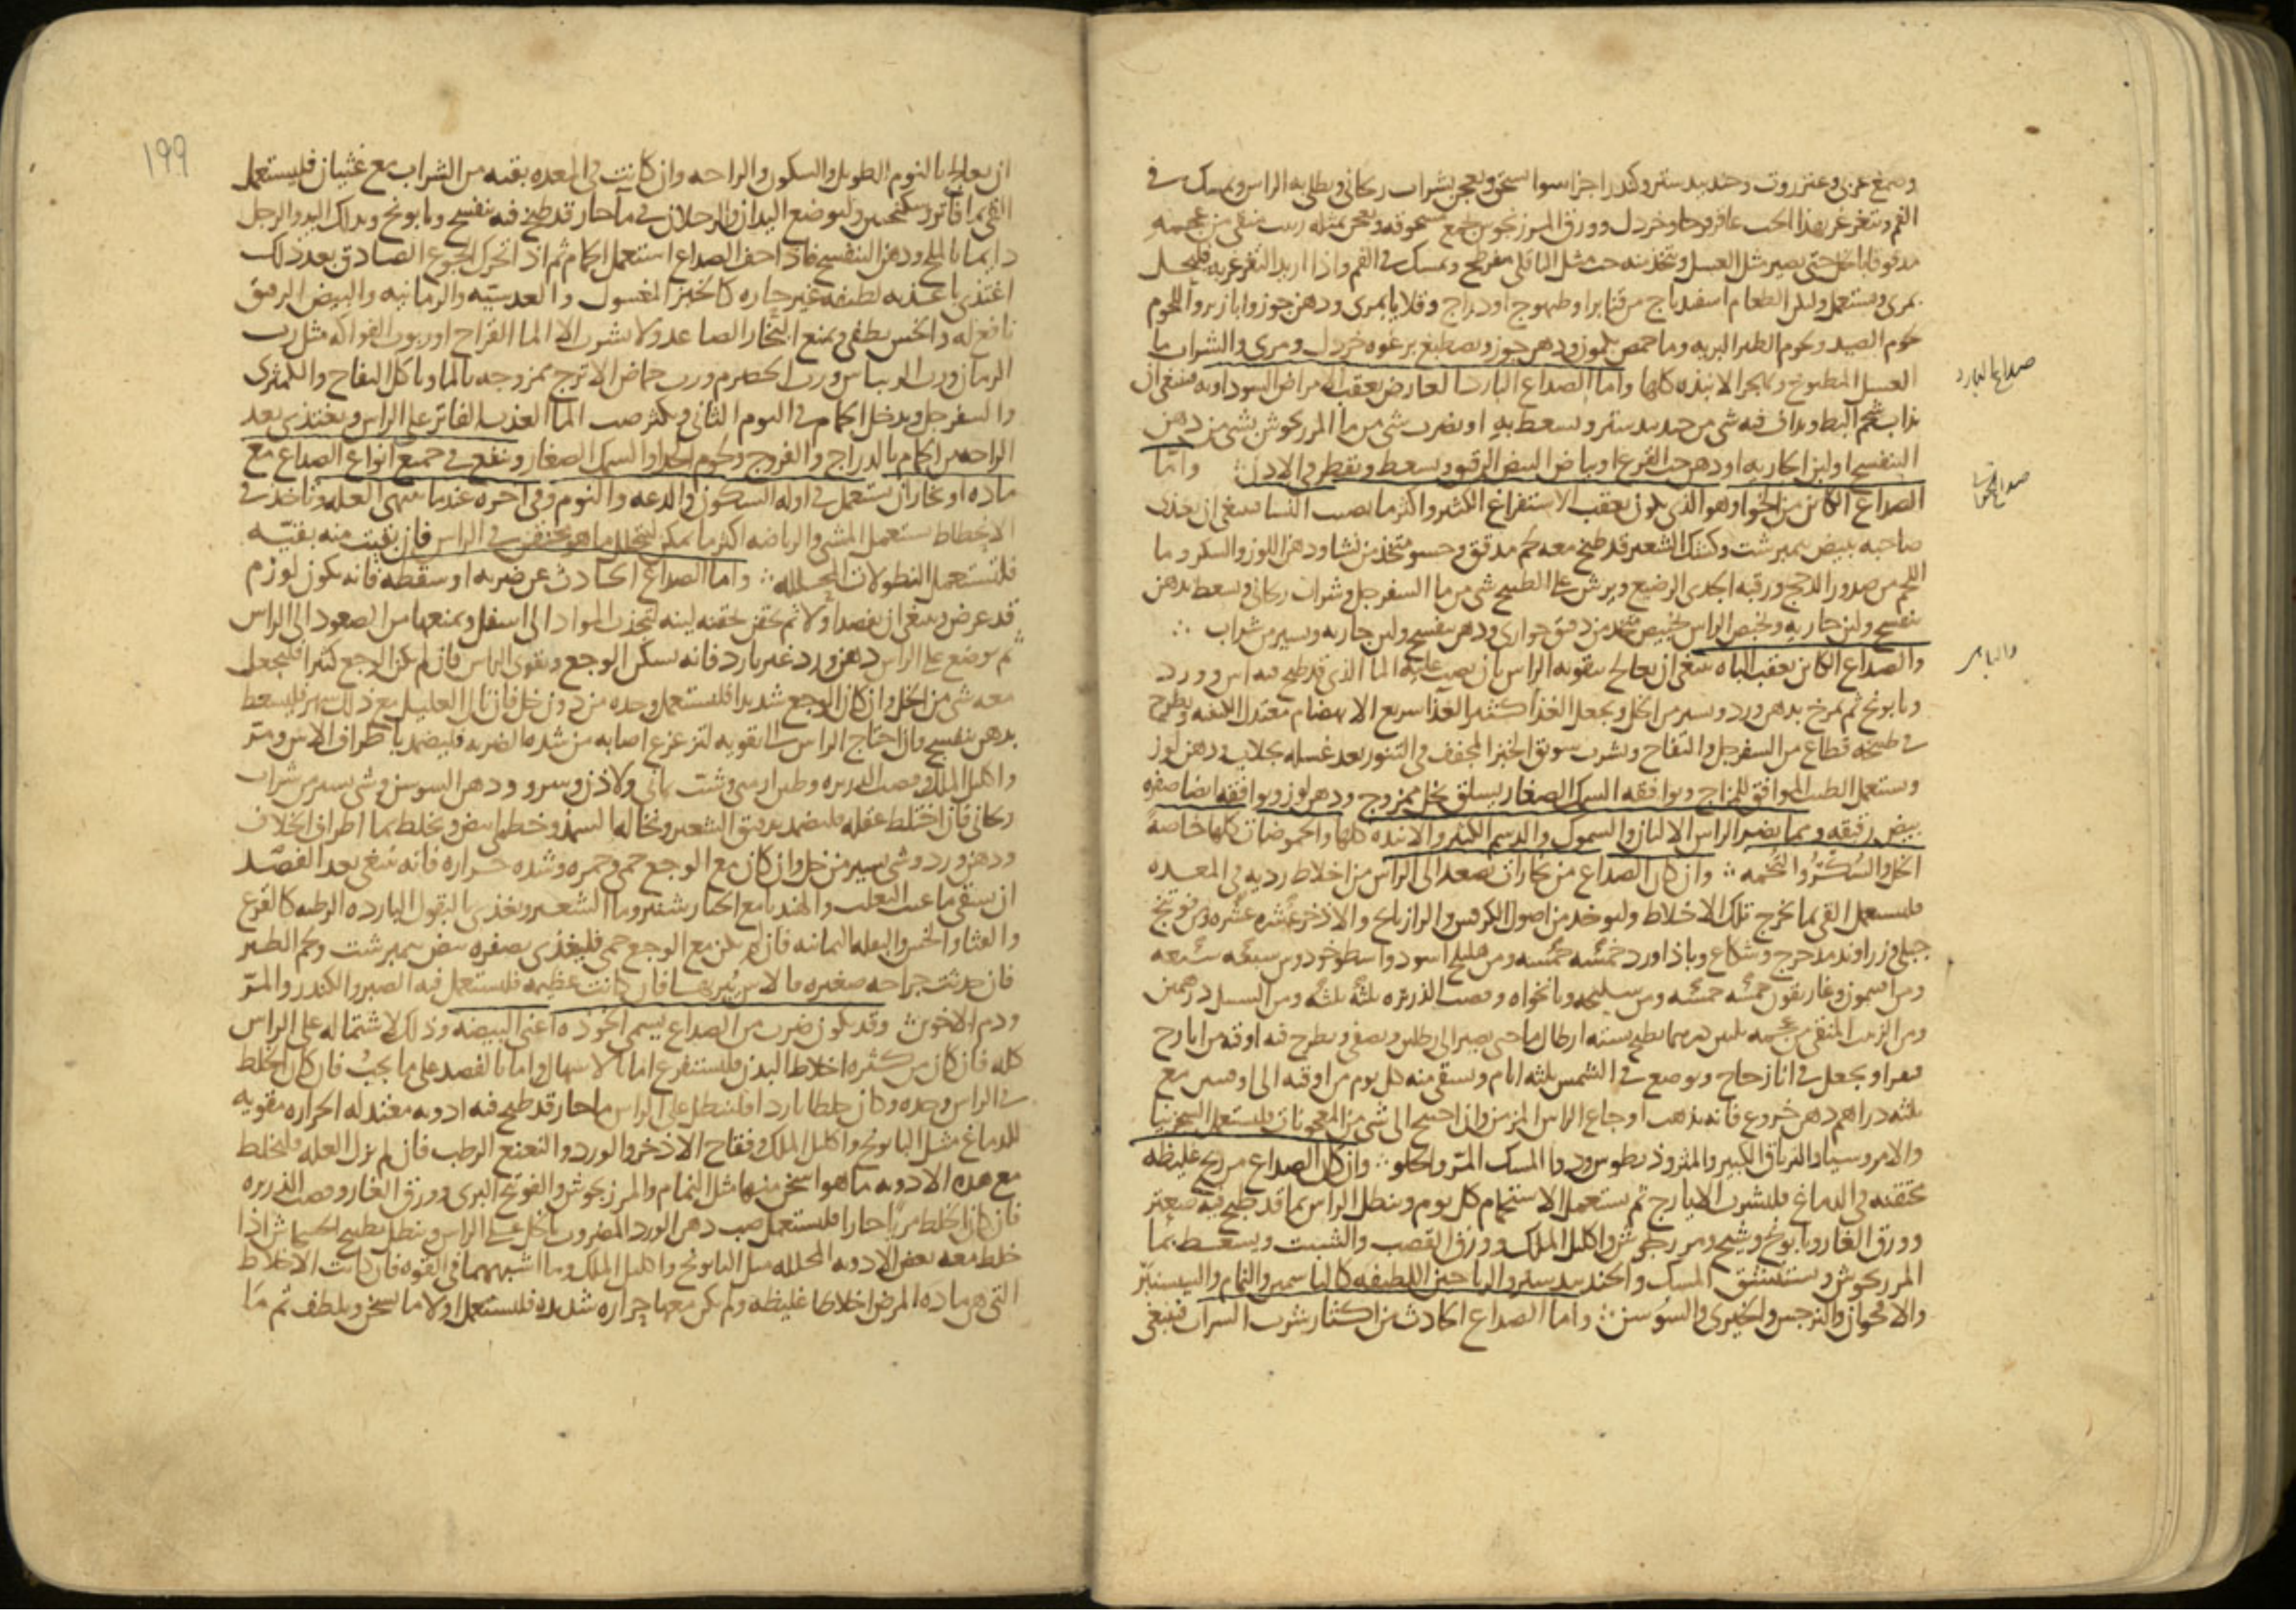 وصمغ عربي وعنزروت وجندبيدستر وكندر اجزا سوا يسحق ويعجن بشراب ريحاني ويطلى به الراس ويمسك في
الفم ويتغرغر بهذا الحب عاقرقرحا وخردل وورق المرزنجوش يجمع مسحوقه ويعجن بمثله زبيب منقى من عجمه
مدقوقا بالخل حتى يصير مثل العسل ويتخذ منه حب مثل الباقلي مفرطح ويمسك في الفم واذا اريد التغرغر به فليحل
بمري ويستعمل وليكن الطعام اسفيدباج من قنابر او طيهوج او دراج وقلايا بمري ودهن جوز وابازير واللحوم
لحوم الصيد ولحوم الطير البريه وما حمص بكمون ودهن جوز ويصطبغ برغوه خردل ومري والشراب ما
العسل المطبوخ وليهجر الانبذه كلها واما الصداع البارد العارض بعقب الامراض السوداويه فينبغي ان
صداع البارد
يذاب شحم البط ويداف فيه شي من جندبيدستر ويسعط به او يضرب شي من ما المرزنجوش بشي من دهن
البنفسج او لبن الجاريه او دهن حب القرع او بياض البيض الرقيق ويسعط ويقطر في الاذن واما
الصداع الكائن من الخوا وهو الذي يكون بعقب الاستفراغ الكثير واكثر ما يصيب النسا فينبغي ان يغذى
صاحبه ببيض نيمبرشت وكشك الشعير قد طبخ معه لحم مدقق وحسو متخذ من نشا ودهن اللوز والسكر وما
اللحم من صدور الدجج ورقبه الجدي الرضيع ويرش على الطبيخ شي من ما السفرجل وشراب ريحاني ويسعط بدهن
بنفسج ولبن جاريه ويخبص الراس بخبيص متخذ من دقيق حواري ودهن بنفسج ولبن جاريه ويسير من شراب
والصداع الكائن بعقب الباه ينبغي ان يعالج بتقويه الراس بان يصب عليه الما الذي قد طبخ فيه اس وورد
وبابونج ثم يمرخ بدهن ورد ويسير من الخل ويجعل الغذا كثير الغذا سريع الانهضام معتدل الكيفيه ويطرح
في طبيخه قطاع من السفرجل والتفاح ويشرب سويق الخبز المجفف في التنور بعد غسله بجلاب في دهن لوز
ويستعمل الطيب الموافق للمزاج ويوافقه السمك الصغار يسلق بخل ممزوج ودهن لوز ويوافقه ايضا صفره
بيض رقيقه ومما يضر الراس الالبان والسموك والدسم الكثير والانبذه كلها والحموضات كلها خاصة
الخل والسكر والتخمه وان كان الصداع من بخارات تصعد الى الراس من اخلاط رديه في المعده
فليستعمل القي بما يخرج تلك الاخلاط وليوخذ من اصول الكرفس والرازيانج والاذخر عشره عشره ومن فوتنج
جبلي وزراوند مدحرج وشكاع وباذاورد خمسه خمسه ومن هليلج اسود واسطوخودوس سبعه سبعه
ومن افتيمون وغاريقون خمسه خمسه ومن سليخه ونانخواه وقصب الذريره ثلثه ثلثه ومن السنبل درهمين
ومن الزبيب المنقى من عجمه ثلثين درهما يطبخ بسته ارطال ما حتى يصير الى رطلين ويصفى ويطرح فيه اوقيه من ايارج
فيقرا ويجعل في انا زجاج ويوضع في الشمس ثلثه ايام ويسقى منه كل يوم من اوقيه الى اوقيتين مع
ثلثه دراهم دهن خروع فانه يذهب اوجاع الراس المزمن وان احتيج الى شي من المعجونات فليستعمل السجزنيا
والامروسيا والترياق الكبير والمثروذيطوس ودوا المسك المر والحلو وان كان الصداع من ريح غليظه
محتقنه في الدماغ فليشرب الايارج ثم يستعمل الاستحمام كل يوم وينطل الراس بما قد طبخ فيه صعتر
وورق الغار وبابونج وشيح ومرزنجوش واكليل الملك وورق القصب والشبت ويسعط بما
المرزنجوش ويستنشق المسك والجندبيدستر والرياحين اللطيفه كالياسمين والنمام والسيسنبر
والاقحوان والنرجس والخيري والسوسن واما الصداع الحادث من اكثار شرب الشراب فينبغي
١٩٩
ان يعالج بالنوم الطويل والسكون والراحه وان كانت في المعده بقيه من الشراب مع غثيان فليستعمل
القي بما فاتر وسكنجبين وليوضع اليدان والرجلان في ما حار قد طبخ فيه بنفسج وبابونج ويدلك اليد والرجل
دايما بالملح ودهن البنفسج فاذا خف الصداع استعمل الحمام ثم اذا تحرك الجوع الصادق بعد ذلك
اغتذى باغذيه لطيفه غير حاره كالخبز المغسول والعدسيه والرمانيه والبيض الرقيق
نافع له والخس يطفي ويمنع البخار الصاعد ولا يشرب الا الما القراح او ربوب الفواكه مثل رب
الرمان ورب الريباس ورب الحصرم ورب حماض الاترج ممزوجه بالما وياكل التفاح والكمثرى
والسفرجل ويدخل الحمام في اليوم الثاني ويكثر صب الما العذب الفاتر على الراس ويغتذي بعد
الراحه من الحمام بالدراج والفروج ولحوم الجدا والسمك الصغار وينفع في جميع انواع الصداع مع
ماده او بخار ان يستعمل في اوله السكون والدعه والنوم وفي اخره عندما تنتهي العله وتاخذ في
الانحطاط يستعمل المشي والرياضه اكثر ما يمكن ليتحلل ما هو محتقن في الراس فان بقيت منه بقيه
فليستعمل النطولات المحلله واما الصداع الحادث عن ضربه او سقطه فانه يكون لورم
قد عرض وينبغي ان يفصد اولا ثم يحقن بحقنه لينه لتجذب المواد الى اسفل ويمنعها من الصعود الى الراس
ثم يوضع على الراس دهن ورد غير بارد فانه يسكن الوجع ويقوي الراس فان لم يكن الوجع كثيرا فليجعل
معه شي من الخل وان كان الوجع شديدا فليستعمل وحده من دون خل فان نال العليل مع ذلك سهر فليسعط
بدهن بنفسج وان احتاج الراس الى تقويه لتزعزع اصابه من شده الضربه فليضمد باطراف الاس ومر
واكليل الملك وقصب الذريره وطين ارمني وشب يماني ولاذن وسرو ودهن السوسن وشي يسير من شراب
ريحاني فان اختلط عقله فليضمد بدقيق الشعير ونخاله السميذ وخطمي ابيض ويخلط بما اطراف الخلاف
ودهن ورد وشي يسير من خل وان كان مع الوجع حمى وحمره وشده حراره فانه ينبغي بعد الفصد
ان يسقى ما عنب الثعلب والهندبا مع الخيار شنبر وما الشعير ويغذى بالبقول البارده الرطبه كالقرع
والقثا والخس والبقله اليمانيه فان لم يكن مع الوجع حمى فليغذى بصفره بيض نيمبرشت ولحم الطير
فان حدثت جراحه صغيره فالاس يبريها فان كانت عظيمه فليستعمل فيه الصبر والكندر والمر
ودم الاخوين وقد يكون ضرب من الصداع يسمى الخوذه اعني البيضه وذلك لاشتماله على الراس
كله فان كان من كثره اخلاط البدن فليستفرغ اما بالاسهال واما بالفصد على ما يجب فان كان الخلط
في الراس وحده وكان خلطا باردا فلينطل على الراس ما حار قد طبخ فيه ادويه معتدله الحراره مقويه
للدماغ مثل البابونج واكليل الملك وفقاح الاذخر والورد والنعنع الرطب فان لم تزل العله فليخلط
مع هذه الادويه ما هو اسخن منها مثل النمام والمرزنجوش والفوتنج البري وورق الغار وقصب الذريره
فان كان الخلط مريا حارا فليستعمل صب دهن الورد المضروب بالخل على الراس وينطل بطبيخ الخشخاش اذا
خلط معه بعض الادويه المحلله مثل البابونج واكليل الملك وما اشبههما في القوه فان كانت الاخلاط
التي هي ماده المرض اخلاطا غليظه ولم يكن معها حراره شديده فليستعمل اولا ما يسخن ويلطف ثم ما